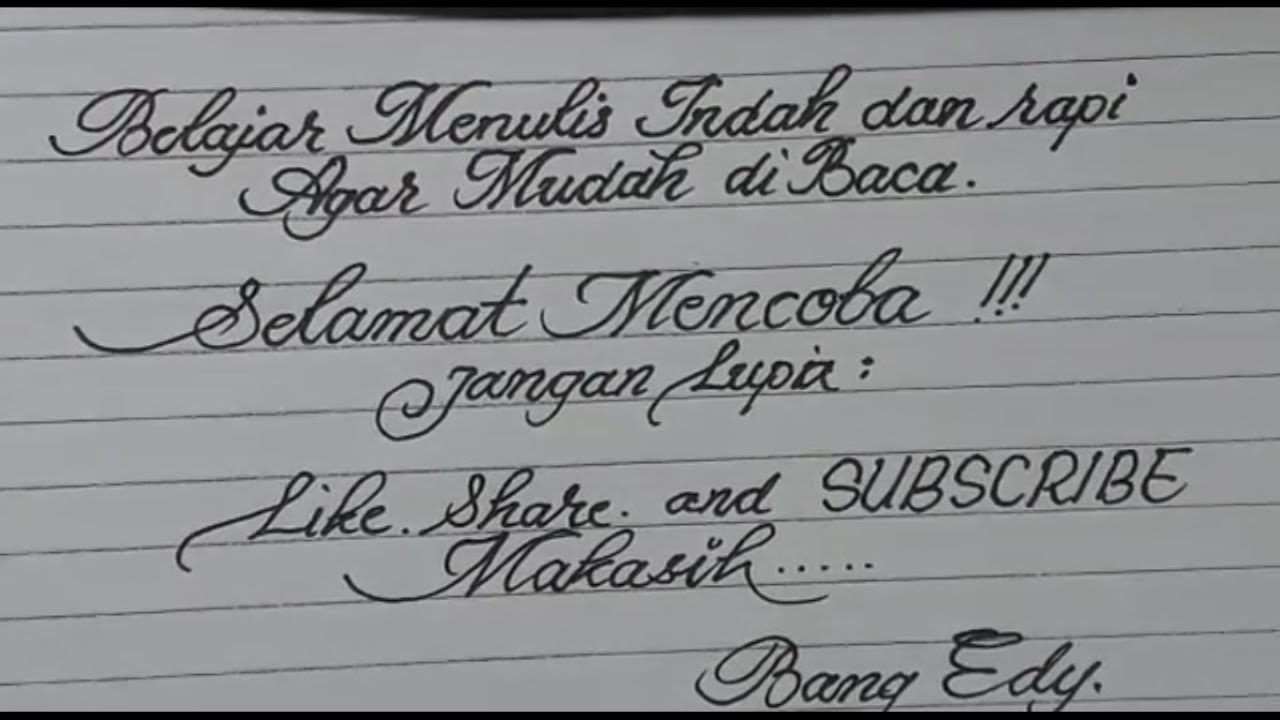 Belajar Menulis Indah dan rapi
Agar Mudah di Baca.
Selamat Mencoba !!!
Jangan Lupa :
Like. Share. and SUBSCRIBE
Makasih.....
Bang Edy.